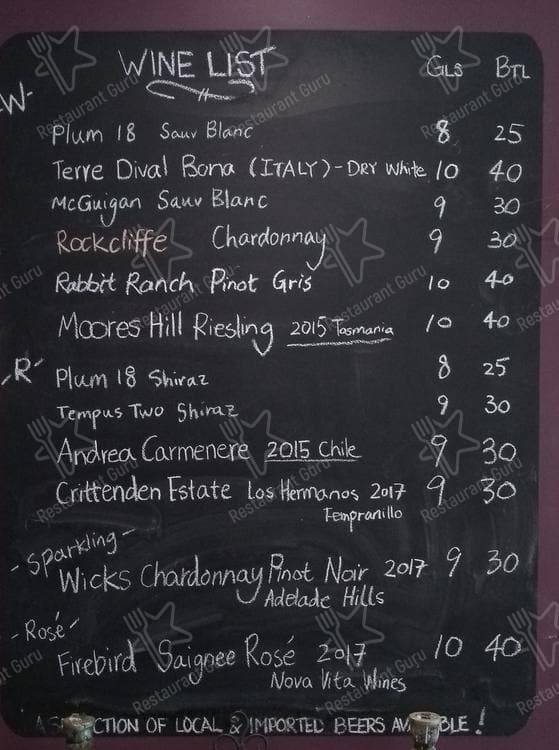 WINE LIST GLS BTL
-W-
Plum 18 Sauv Blanc 8 25
Terre Dival Bona (ITALY) - DRY White 10 40
McGuigan Sauv Blanc 9 30
Rockcliffe Chardonnay 9 30
Rabbit Ranch Pinot Gris 10 40
Moores Hill Riesling 2015 Tasmania 10 40
-R-
Plum 18 Shiraz 8 25
Tempus Two Shiraz 9 30
Andrea Carmenere 2015 Chile 9 30
Crittenden Estate Los Hermanos 2017 9 30
Tempranillo
- Sparkling -
Wicks Chardonnay Pinot Noir 2017 9 30
Adelade Hills
- Rosé -
Firebird Saignee Rosé 2017 10 40
Nova Vita Wines
OF LOCAL & IMPORTED BEERS !
Restaurant Guru